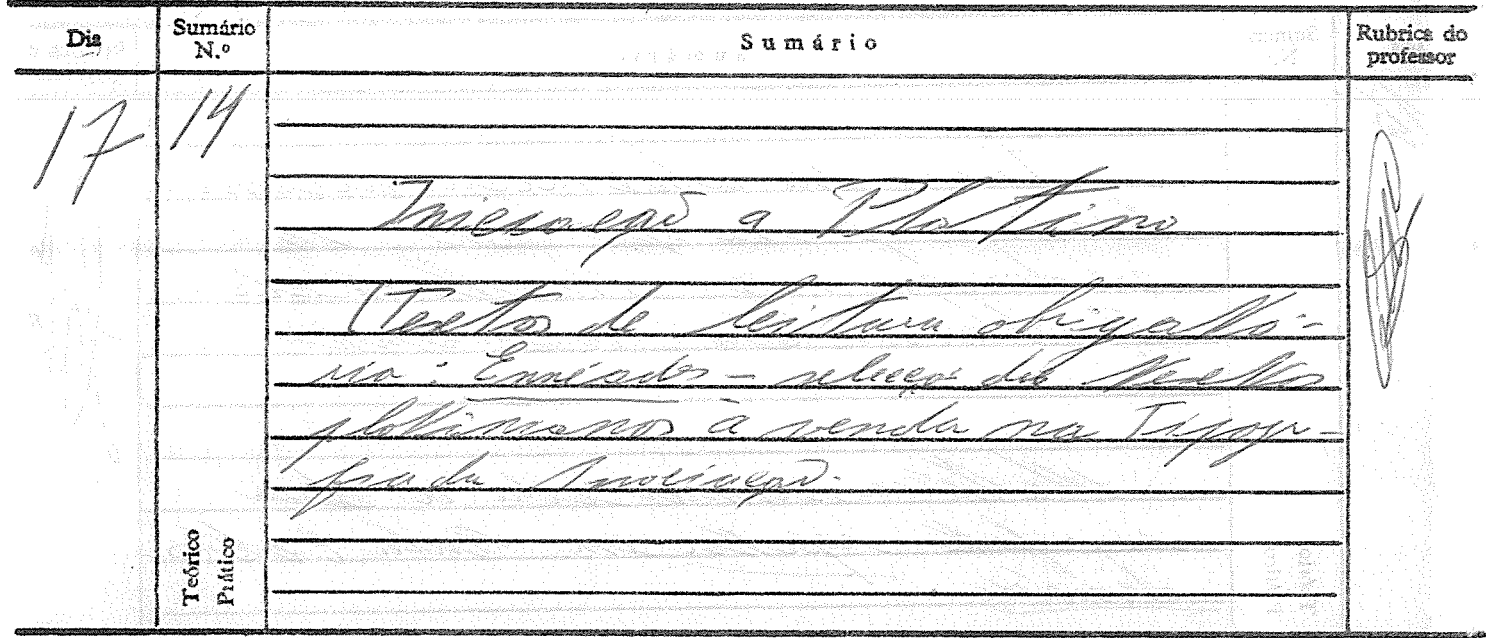 Dia
Sumário N.º
Sumário
Rubrica do professor
17
14
Iniciação a Plotino
(Textos de leitura obrigató-
ria: Ennéades - selecção de textos
plotinianos à venda na Tipogra-
fia da Associação.
Teórico
Prático